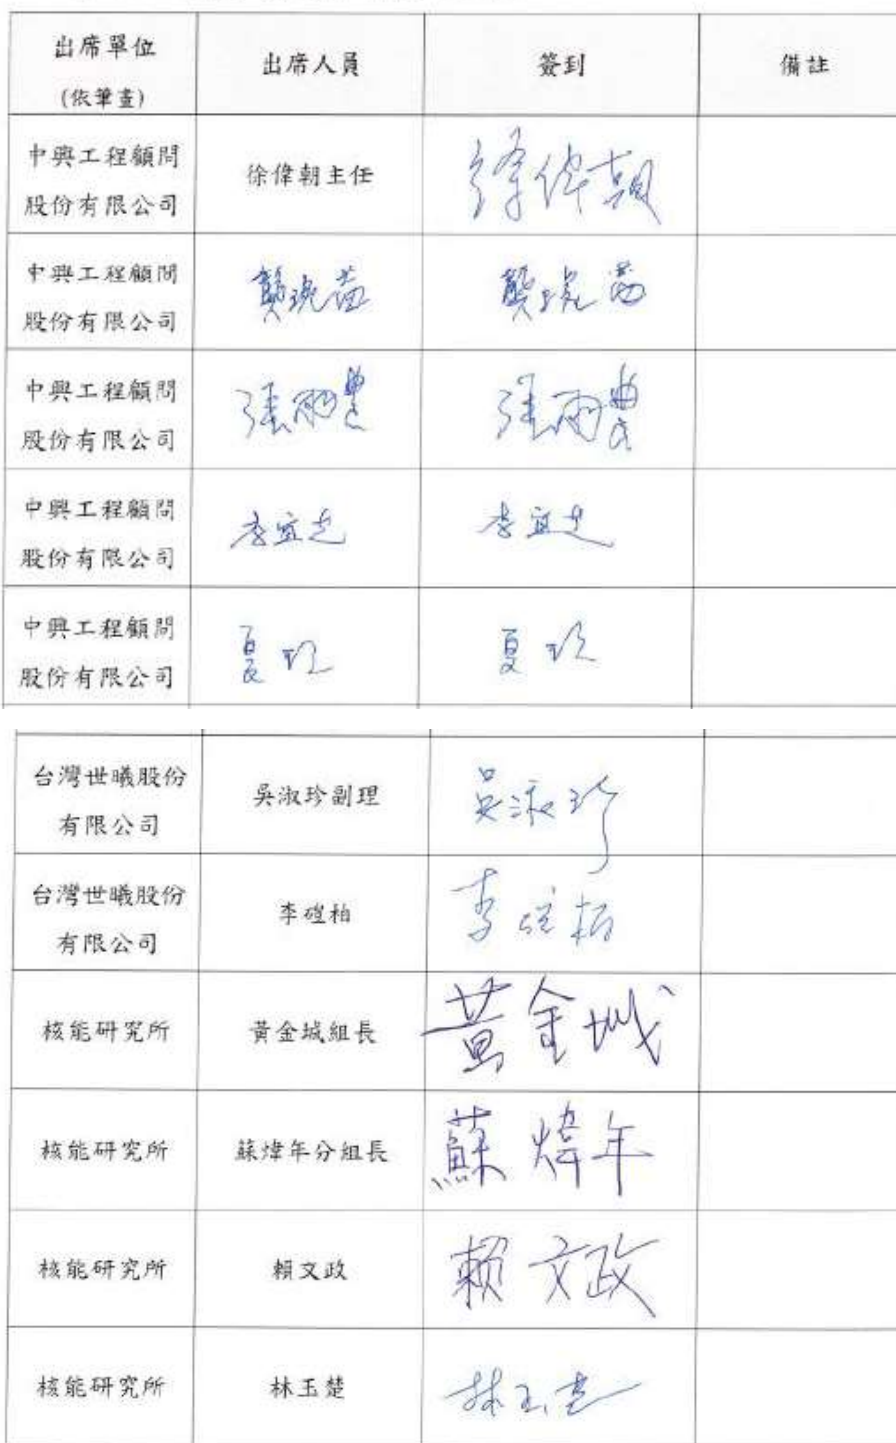 出席單位
(依筆畫)
出席人員
簽到
備註
中興工程顧問
股份有限公司
徐偉朝主任
徐偉朝
中興工程顧問
股份有限公司
中興工程顧問
股份有限公司
張雨豊
張雨農
中興工程顧問
股份有限公司
李宜
李宜
中興工程顧問
股份有限公司
夏
夏
台灣世曦股份
有限公司
吳淑珍副理
吳淑珍
台灣世曦股份
有限公司
李磑柏
李磑柏
核能研究所
黃金城組長
黃金城
核能研究所
蘇煒年分組長
蘇煒年
核能研究所
賴文政
賴文政
核能研究所
林玉楚
林玉楚